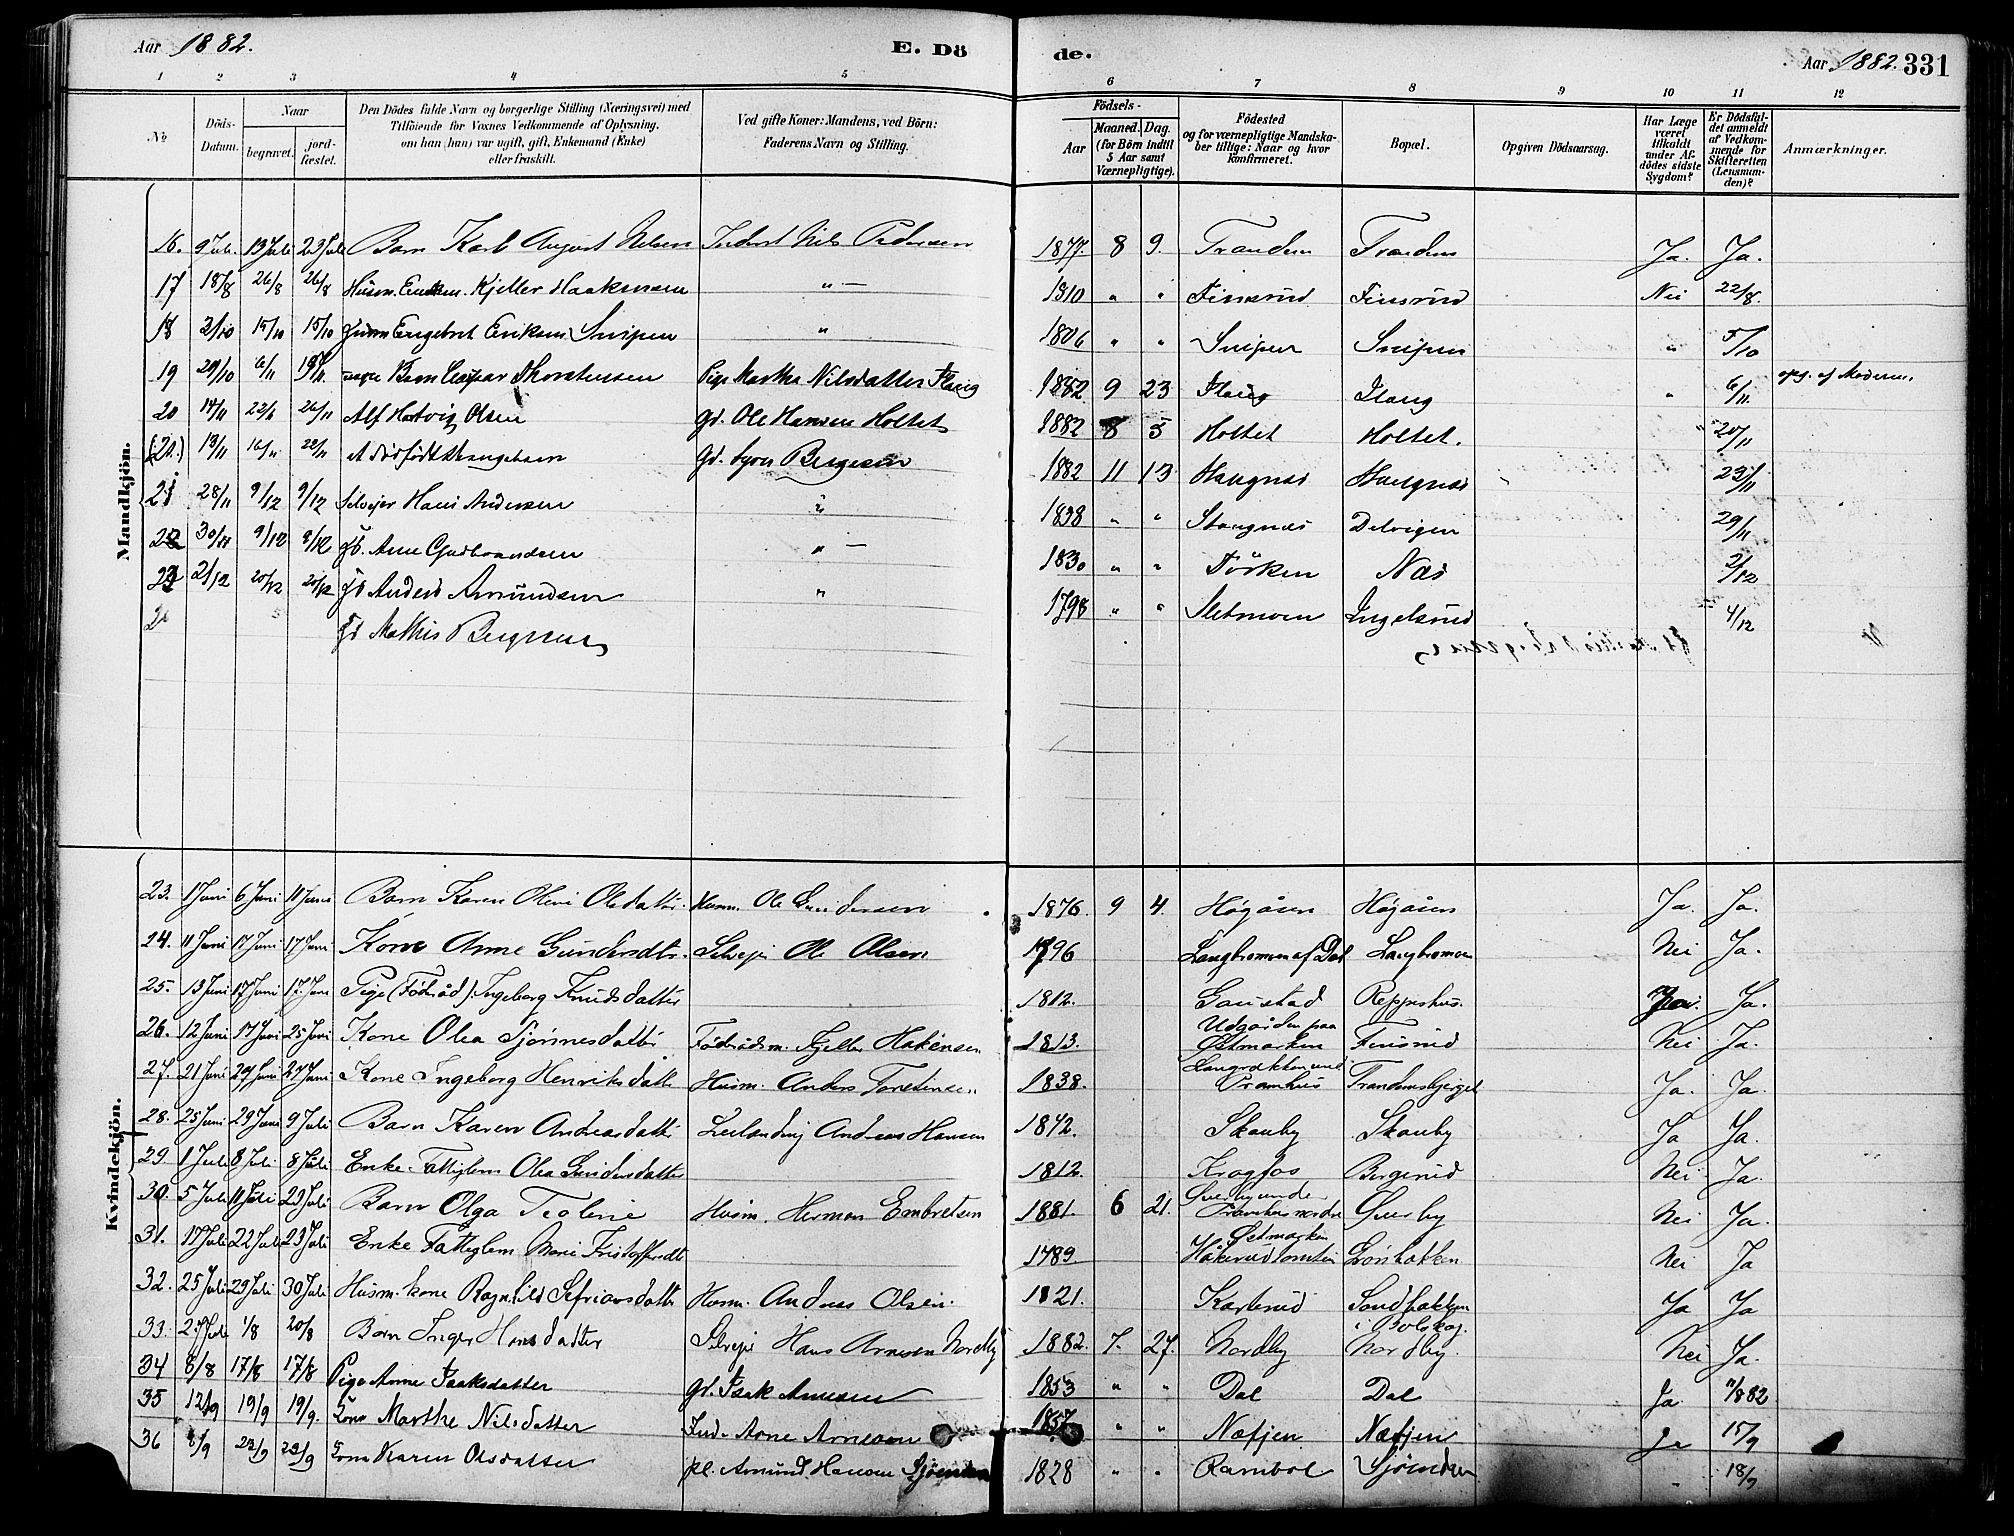 Aar 1882. E. Dö de. Aar 1882. 331
1 2 3 4 5 6 7 8 9 10 11 12
No
Döds-Datum.
Naar
begravet. jord-fæstet.
Den Dödes fulde Navn og borgerlige Stilling (Næringsvei) med
Tilföiende for Voxnes Vedkommende af Oplysning.
om han (hun) var ugift, gift, Enkemand (Enke)
eller fraskilt.
Ved gifte Koner: Mandens, ved Börn:
Faderens Navn og Stilling.
Födsels-
Aar Maaned. Dag.
(for Börn indtil
5 Aar samt
Værnepligtige).
Födested
og for værnepligtige Mandska-
ber tillige: Naar og hvor
konfirmeret.
Bopæl.
Opgiven Dödsaarsag.
Har Læge
været
tilkaldt
under Af-
dödes sidste
Sygdom?
Er Dödsfal-
det anmeldt
af Vedkom-
mende for
Skifteretten
(Lensman-
den)?
Anmærkninger.
Mandkjön.
16. 9 Juli 13 Juli 23 Juli Barn Karl August Nilsen Inderst Nils Pedersen 1877. 8 9. Tranden Tranden Ja. Ja.
17 18/8 26/8 26/8 Husm. Kjeller Haakensen " — 1810 " " Finsrud Finsrud Nei 22/8.
18 2/10 15/10 15/10 Engebret Eriksen Snipen " 1806 " " Snipen Snipen " 5/10
19 29/10 6/11 Barn Caspar Thorstensen Pige Martha Nilsdatter Haug 1882 9 23 Haug Haug " 6/11 opg. af Moderen.
20 14/11 22/11 26/11 Alf Hartvig Olsen Gd. Ole Hansen Holtet 1882 8 5 Holtet Holtet. " 20/11
(21.) 13/11 16/11 et dödfödt Drengebarn Gd. Bergesen 1882 11 13 Haugnæs Haugnæs 23/11
21 28/11 9/12 9/12 Selvejer Hans Andersen " 1838 " " Stangnæs Delvigen 29/11
22 30/11 9/12 9/12 Gb. Arne Gudbrandsen " — 1830 " " Törken Næs 2/12
23 2/12 20/12 20/12 Gb Anders Amundsen " 1798 " " Sletmoen Ingelsrud 4/12
2 Gb Mathis Bergesen
Kvindekjön.
23. 1 Juni 6 Juni 11 Juni Barn Karen Oline Olsdatter. Husm. Ole Gundersen 1876 9 4. Högåsen Högåsen Ja. Ja.
24. 11 Juni 17 Juni 17 Juni Kone Anne Gundersdtr. Selvejer Ole Olsen 1796 Langbromoen af Dal Langbromoen Nei Ja.
25. 13 Juni 17 Juni 17. Juni Pige (Föderåd) Ingeborg Knudsdatter 1812. Gaustad Reppeshus. Ja.
26. 12 Juni 17 Juni 25 Juni Kone Olea Sjønnesdatter Föderådsm. Kjeller Hakensen 1813. Udgården paa Østmarken Finsrud Nei Ja.
27. 21 Juni 29 Juni 29 Juni Kone Ingeborg Henriksdatter Husm. Anders Torstensen 1838. Langrækken und. Framhus Trandemsbjerget Ja. Ja.
28. 25 Juni 29 Juni 9 Juli Barn Karen Andreasdatter Leilænding Andreas Hansen 1842. Skauby Skauby Ja Ja.
29 1 Juli 8 Juli 8 Juli Enke. Fattiglem Olea Gundersdatter 1812. Krogfos Bergerud Nei Ja.
30. 5 Juli 11 Juli 23 Juli Barn Olga Teoline Husm. Herman Embretsen 1881 6 21. Overby under Framhus nordre Overby Nei Ja.
31. 17 Juli 22 Juli 23 Juli Enke Fattiglem Marie Kristoffersdtr 1789 Østmarken Håkerud Grönbakken Nei Ja
32. 25 Juli 29 Juli 30 Juli Husm.kone Ragnhild Sefriansdatter Husm. Andreas Olsen. 1821. Karterud Sandbakken i Bolskog. Ja Ja
33. 27 Juli 1/8 20/8 Barn Inger Hansdatter Selvejer Hans Arnesen Nordby 1882. 7. 27. Nordby Nordby. Nei Ja.
34 8/8 17/8 17/8 Pige Anne Isaksdatter Gd. Isak Arnesen 1853 " " Dal Dal Ja 11/8 82
35 12/9 19/9 19/9. Kone Marthe Nilsdatter Ind. Arne Arnesen 1857 " " Næfjen Næfjen Ja 15/9
36 8/9 23/9 23/9 Kone Karen Olsdatter Pl. Amund Hansen Sjöenden 1828 " " Rambol Sjöenden " 18/9